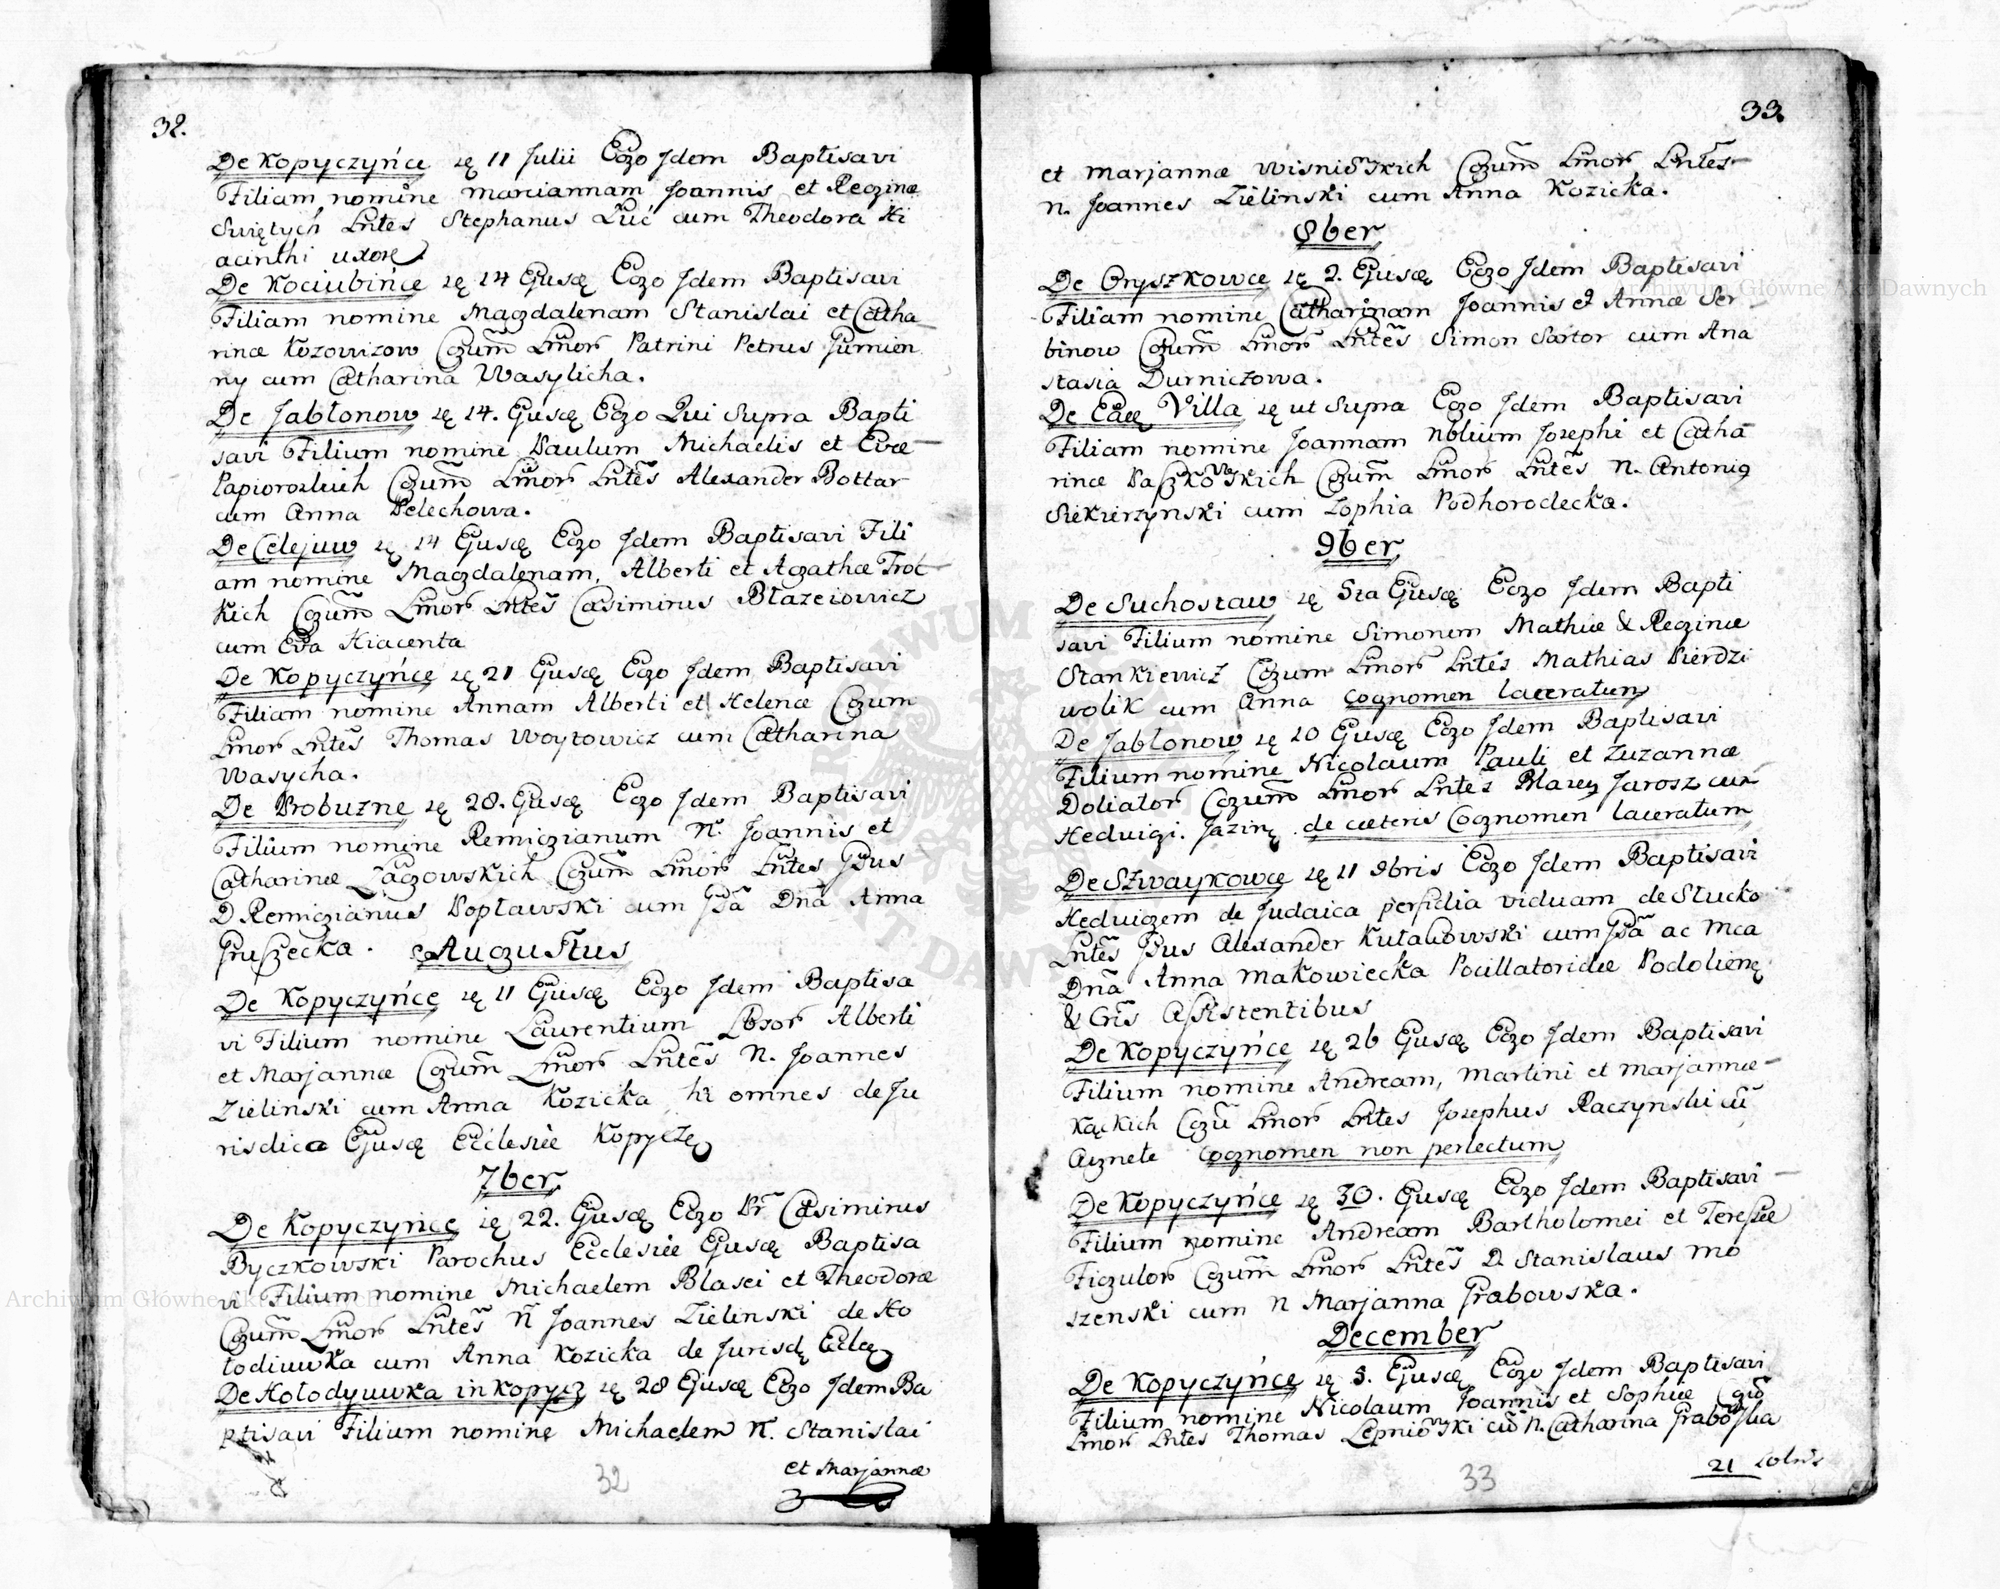 32.
De Kopyczyńcę ię 11 Julii Ego Jdem Baptisavi
Filiam nomine Mariannam Joannis et Reginæ
Świętych Lntes Stephanus Luć cum Theodora Hi
acinthi uxorę
De Kociubińcę ię 14 Ejusdę Ego Jdem Baptisavi
Filiam nomine Magdalenam Stanislai et Catha
rinæ Kozowizow Cgum Lmor Patrini Petrus
ny cum Catharina Wasylicha.
De Jabłonow ię 14. Ejusdę Ego Qui Supra Bapti
savi Filium nomine Paulum Michaelis et Evæ
Cgum Lmor Lntes Alexander Bottar
cum Anna Pelechowa.
De Celejuw ię 14 Ejusdę Ego Jdem Baptisavi Fili
am nomine Magdalenam, Alberti et Agathæ Troc
kich Cgum Lmor Lntes Casimirus Błazeiowicz
cum Eva Hiacenta
De Kopyczyńcę ię 21 Ejusdę Ego Jdem Baptisavi
Filiam nomine Annam Alberti et Helenæ Cgum
Lmor Lntes Thomas Woytowicz cum Catharina
Wasycha.
De Probuzne ię 28. Ejusdę Ego Jdem Baptisavi
Filium nomine Remigianum N. Joannis et
Catharinæ Zagowskich Cgum Lmor Lntes Gsus
D Remigianus Popławski cum Gsa Dna Anna
Gruszecka. Augustus
De Kopyczyńcę ię 11 Ejusdę Ego Jdem Baptisa
vi Filium nomine Laurentium Lbror Alberti
et Marjannæ Cgum Lmor Lntes N. Joannes
Zielinski cum Anna Kozicka hi omnes de Ju
risdica Ejusdę Ecclesiæ Kopyczę
7ber
De Kopyczyńcę ię 22. Ejusdę Ego Pr Casimirus
Byczkowski Parochus Ecclesiæ Ejusdę Baptisa
vi Filium nomine Michaelem Blasei et Theodoræ
Cgum Lmor Lntes N Joannes Zielinski de Ho
łodiuwka cum Anna Kozicka de Jurisdę Eclę
De Hołodyuwka in Kopycz ię 28 Ejusdę Ego Jdem Ba
ptisavi Filium nomine Michaelem N. Stanislai
et Marjannæ
32
33.
et Marjannæ Wisniowskich Cgum Lmor Lntes
N. Joannes Zielinski cum Anna Kozicka.
8ber
De Oryszkowcę ię 2. Ejusdę Ego Jdem Baptisavi
Filiam nomine Catharinam Joannis et Annæ Ser
binow Cgum Lmor Lntes Simon Sartor cum Ana
stasia Durniczowa.
De Eadę Villa ię ut Supra Ego Jdem Baptisavi
Filiam nomine Joannam Nblium Josephi et Catha
rinæ Paszkowskich Cgum Lmor Lntes N. Antonig
Siekierzynski cum Zophia Podhorodecka.
9ber
De Suchostaw ię 5ta Ejusdę Ego Jdem Bapti
savi Filium nomine Simonem Mathiæ & Reginæ
Stankiewicz Cgum Lmor Lntes Mathias Pierdzi
wolik cum Anna cognomen laceratum
De Jabłonow ię 10 Ejusdę Ego Jdem Baptisavi
Filium nomine Nicolaum Pauli et Zuzannæ
Doliator Cgum Lmor Lntes Blazey Jarosz cum
Hedvigi. Jazinę de cæteris Cognomen laceratum
De Szwaykowcę ię 11 9bris Ego Jdem Baptisavi
Hedvigem de Judaica perfidia viduam de Stucko
Lntes Gsus Alexander Kułakowski cum Gsa ac Mca
Dna Anna Makowiecka Pocillatoridæ Podolienę
& Cris Assistentibus
De Kopyczyńcę ię 26 Ejusdę Ego Jdem Baptisavi
Filium nomine Andream, Martini et Marjannæ
Kąckich Cgu Lmor Lntes Josephus Raczynski cu
Agnete Cognomen non perlectum
De Kopyczyńcę ię 30. Ejusdę Ego Jdem Baptisavi
Filium nomine Andream Bartholomei et Teressæ
Figulor Cgum Lmor Lntes D. Stanislaus Mo
szenski cum N Marjanna Grabowska.
December
De Kopyczyńcę ię 3. Ejusdę Ego Jdem Baptisavi
Filium nomine Nicolaum Joannis et Sophiæ Cgu
Lmor Lntes Thomas Lepniowski cu N. Catharina Grabowska
21
33
Archiwum Główne Akt Dawnych
Archiwum Główne Akt Dawnych
ARCHIWUM GŁÓWNE AKT DAWNYCH